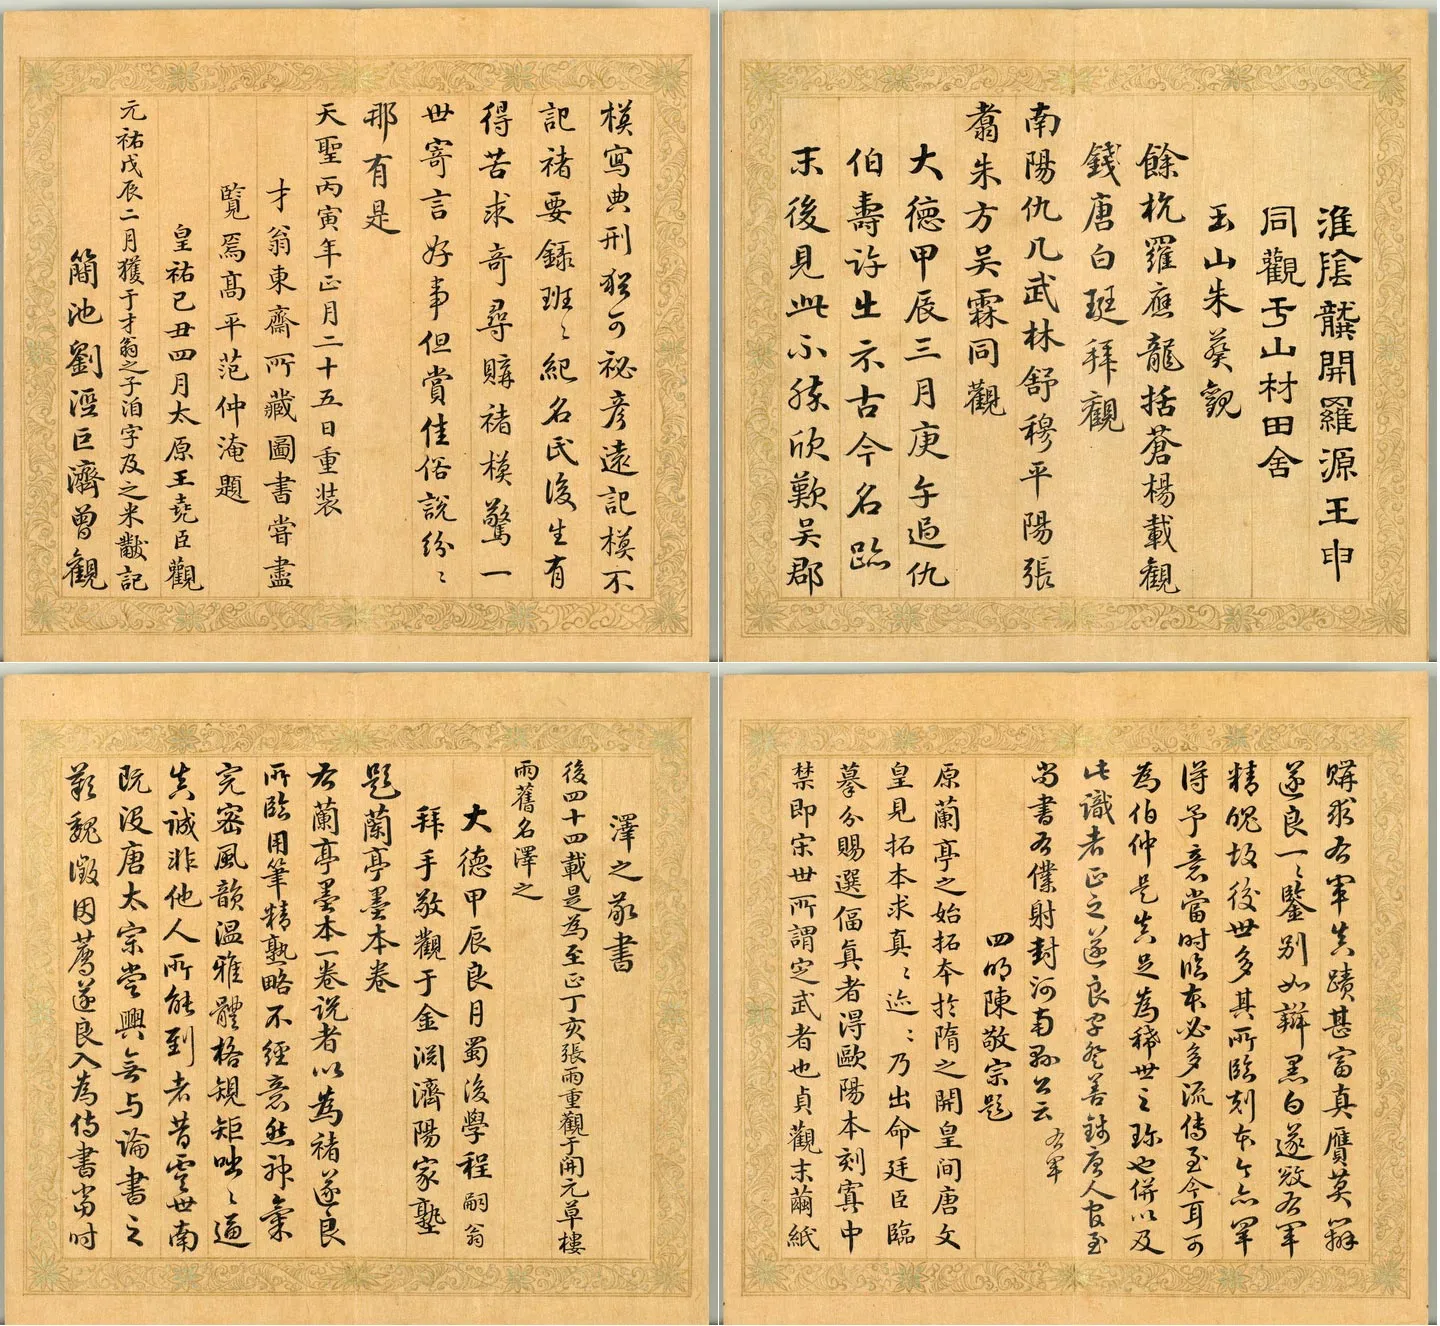 模寫典刑猶可秘彥遠記模不
記褚要錄班〻紀名氏後生有
得苦求奇尋購褚模驚一
世寄言好事但賞佳俗說紛〻
那有是
天聖丙寅年正月二十五日重裝
才翁東齋所藏圖書嘗盡
覽焉高平范仲淹題
皇祐己丑四月太原王堯臣觀
元祐戊辰二月獲于才翁之子洎字及之米黻記
簡池劉涇巨濟曾觀
淮陰龔開羅源王申
同觀于山村田舍
玉山朱葵觀
餘杭羅應龍括蒼楊載觀
錢唐白珽拜觀
南陽仇几武林舒穆平陽張
翥朱方吳霖同觀
大德甲辰三月庚午過仇
伯壽許出示古今名跡
末後見此不勝欣歎吳郡
澤之敬書
後四十四載是為至正丁亥張雨重觀于開元草樓
雨舊名澤之
大德甲辰良月蜀後學程嗣翁
拜手敬觀于金淵濟陽家塾
題蘭亭墨本卷
右蘭亭墨本一卷說者以為褚遂良
所臨用筆精熟略不經意然神氣
完密風韻溫雅體格規矩咄〻逼
真誠非他人所能到者昔虞世南
既沒唐太宗嘗興無與論書之
歎魏徵因薦遂良入為侍書當時
購求右軍真蹟甚富真贗莫辯
遂良一〻鑒別如辯黑白遂啟右軍
精魄故後世多其所臨刻本今亦罕
得予意當時臨本必多流傳至今耳可
為伯仲是真足為稀世之珍也併以及
此識者正之遂良字登善錢唐人官至
尚書右僕射封河南郡公云 右軍
四明陳敬宗題
原蘭亭之始拓本於隋之開皇間唐文
皇見拓本求真〻迹〻乃出命廷臣臨
摹分賜選偪真者得歐陽本刻寘中
禁即宋世所謂定武者也貞觀末繭紙